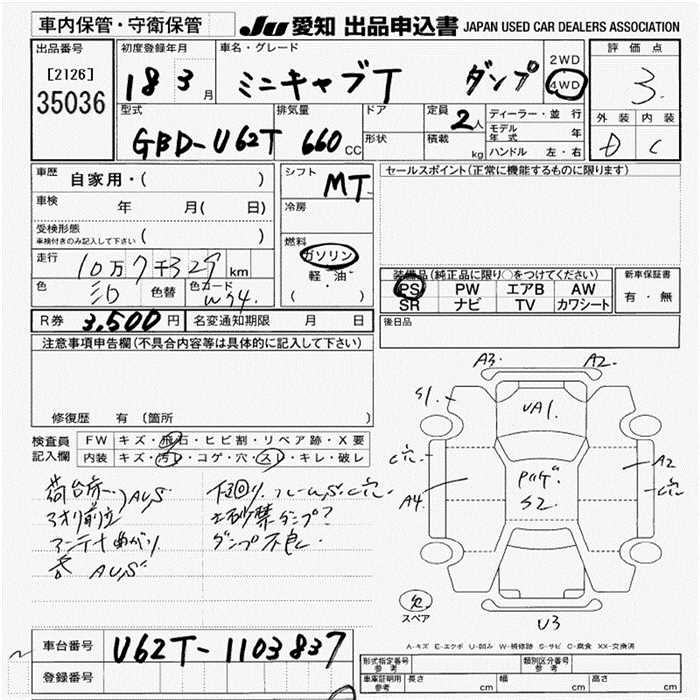 車内保管・守衛保管 JU 愛知 出品申込書 JAPAN USED CAR DEALERS ASSOCIATION
出品番号 初度登録年月 車名・グレード 2WD 評価点
[2126] 18 3月 ミニキャブT ダンプ 4WD 3.
35036 外装 内装
型式 排気量 ドア 定員 2人 ディーラー・並行
モデル年式 年 D C
GBD-U62T 660CC 形状 積載 kg ハンドル 左・右
車歴 自家用・( ) シフト MT セールスポイント(正常に機能するものに限ります)
車検 年 月( 日) 冷房
受検形態
車検付きのみ記入して下さい ( )
燃料
走行 10万7千329km ガソリン
軽・油
( )
装備品(純正品に限り○をつけてください) 新車保証書
色 色替 色カード W94. PS PW エアB AW 有・無
SR ナビ TV カワシート
R券 3,500円 名変通知期限 月 日 後日品
注意事項申告欄(不具合内容等は具体的に記入して下さい)
修復歴 有(箇所
検査員 FW キズ・飛石・ヒビ割・リペア跡・X要
記入欄 内装 キズ・汚レ・コゲ・穴・スレ・キレ・破レ
A3. A2.
S1. UA1.
C穴 A2
A4. S2. C穴
U3
スペア
荷台 AUS 下回り フレームS.C穴
アオリ 土砂禁ダンプ?
アンテナ ダンプ不良.
AUS
A-キズ E-エクボ U-凹み W-補修跡 S-サビ C-腐食 XX-交換済
車台番号 U62T-1103837
登録番号
形式指定番号 参考 類別区分番号 参考
車庫証明用 参考 長さ cm 幅 cm 高さ cm